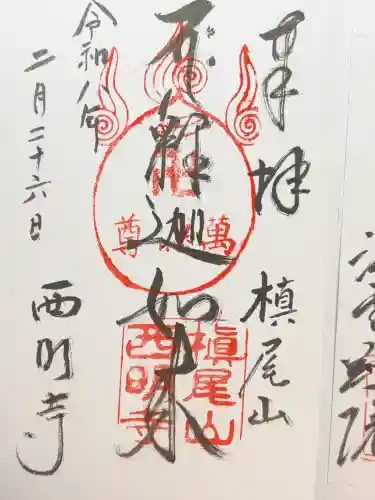 奉拝
槙尾山
釈迦如来
令和八年
二月二十六日
西明寺
萬
尊
槙尾山
西明寺